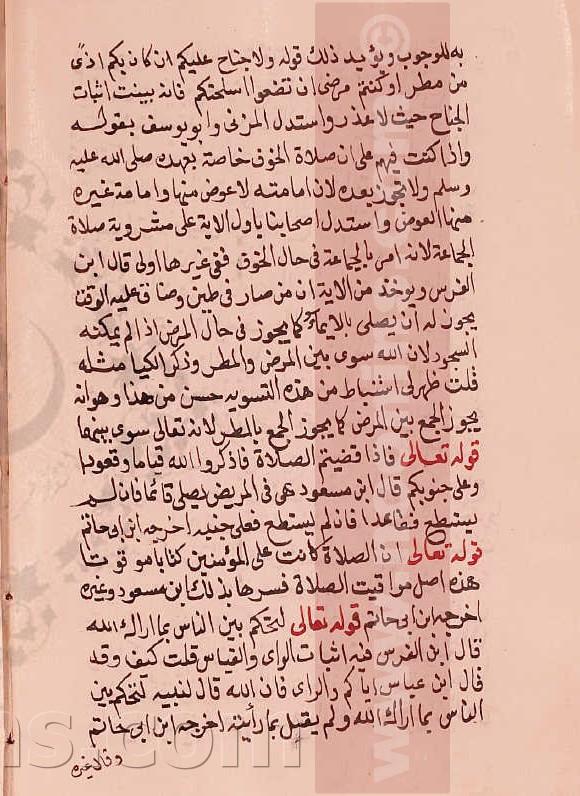 به للوجوب ويؤيد ذلك قوله ولا جناح عليكم ان كان بكم اذى
من مطر او كنتم مرضى ان تضعوا اسلحتكم فانه يبيت اثبات
الجناح حيث لا عذر واستدل المزنى وابو يوسف بقوله
واذا كنت فيهم على ان صلاة الخوف خاصة بعهده صلى الله عليه
وسلم ولا تجوز بعده لان امامته لا عوض منها وامامة غيره
منها العوض واستدل اصحابنا باول الاية على مشروية صلاة
الجماعة لانه امر بالجماعة فى حال الخوف ففى غيرها اولى قال ابن
الفرس ويوخذ من الاية ان من صار فى طين وضاق عليه الوقت
يجوز له ان يصلى بالايماء كما يجوز فى حال المرض اذا لم يمكنه
السجود لان الله سوى بين المرض والمطر وذكر الكيا مثله
قلت ظهر لى استنباط من هذه التسويه حسن من هذا وهوانه
يجوز الجمع بين المرض كما يجوز الجمع بالمطر لانه تعالى سوى بينهما
قوله تعالى فاذا قضيتم الصلاة فاذكروا الله قياما وقعودا
وعلى جنوبكم قال ابن مسعود هى فى المريض يصلى قائما فان لم
يستطع فقاعدا فان لم يستطع فعلى جنبه اخرجه ابن ابى حاتم
قوله تعالى ان الصلاة كانت على المؤمنين كتابا موقوتا
هذه اصل مواقيت الصلاة فسرها بذلك ابن مسعود وغيره
اخرجه ابن ابى حاتم قوله تعالى لتحكم بين الناس بما اراك الله
قال ابن الفرس فيه اثبات الراى والقياس قلت كيف وقد
قال ابن عباس اياكم والراى فان الله قال لنبيه لتحكم بين
الناس بما اراك الله ولم يقل بما رأيت اخرجه ابن ابى حاتم
وقال غيره